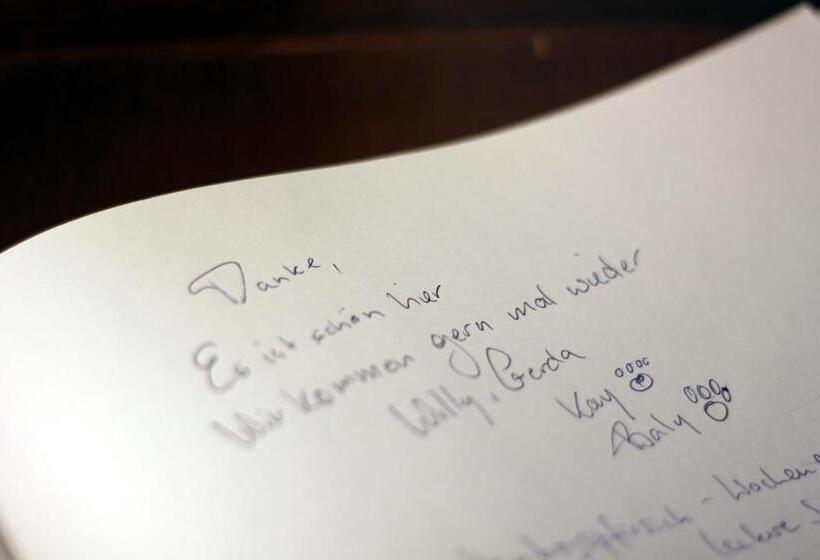 Danke,
Es ist schön hier
Wir kommen gern mal wieder
Willy, Gerda
Kay
Baly
- Wochen
leckere